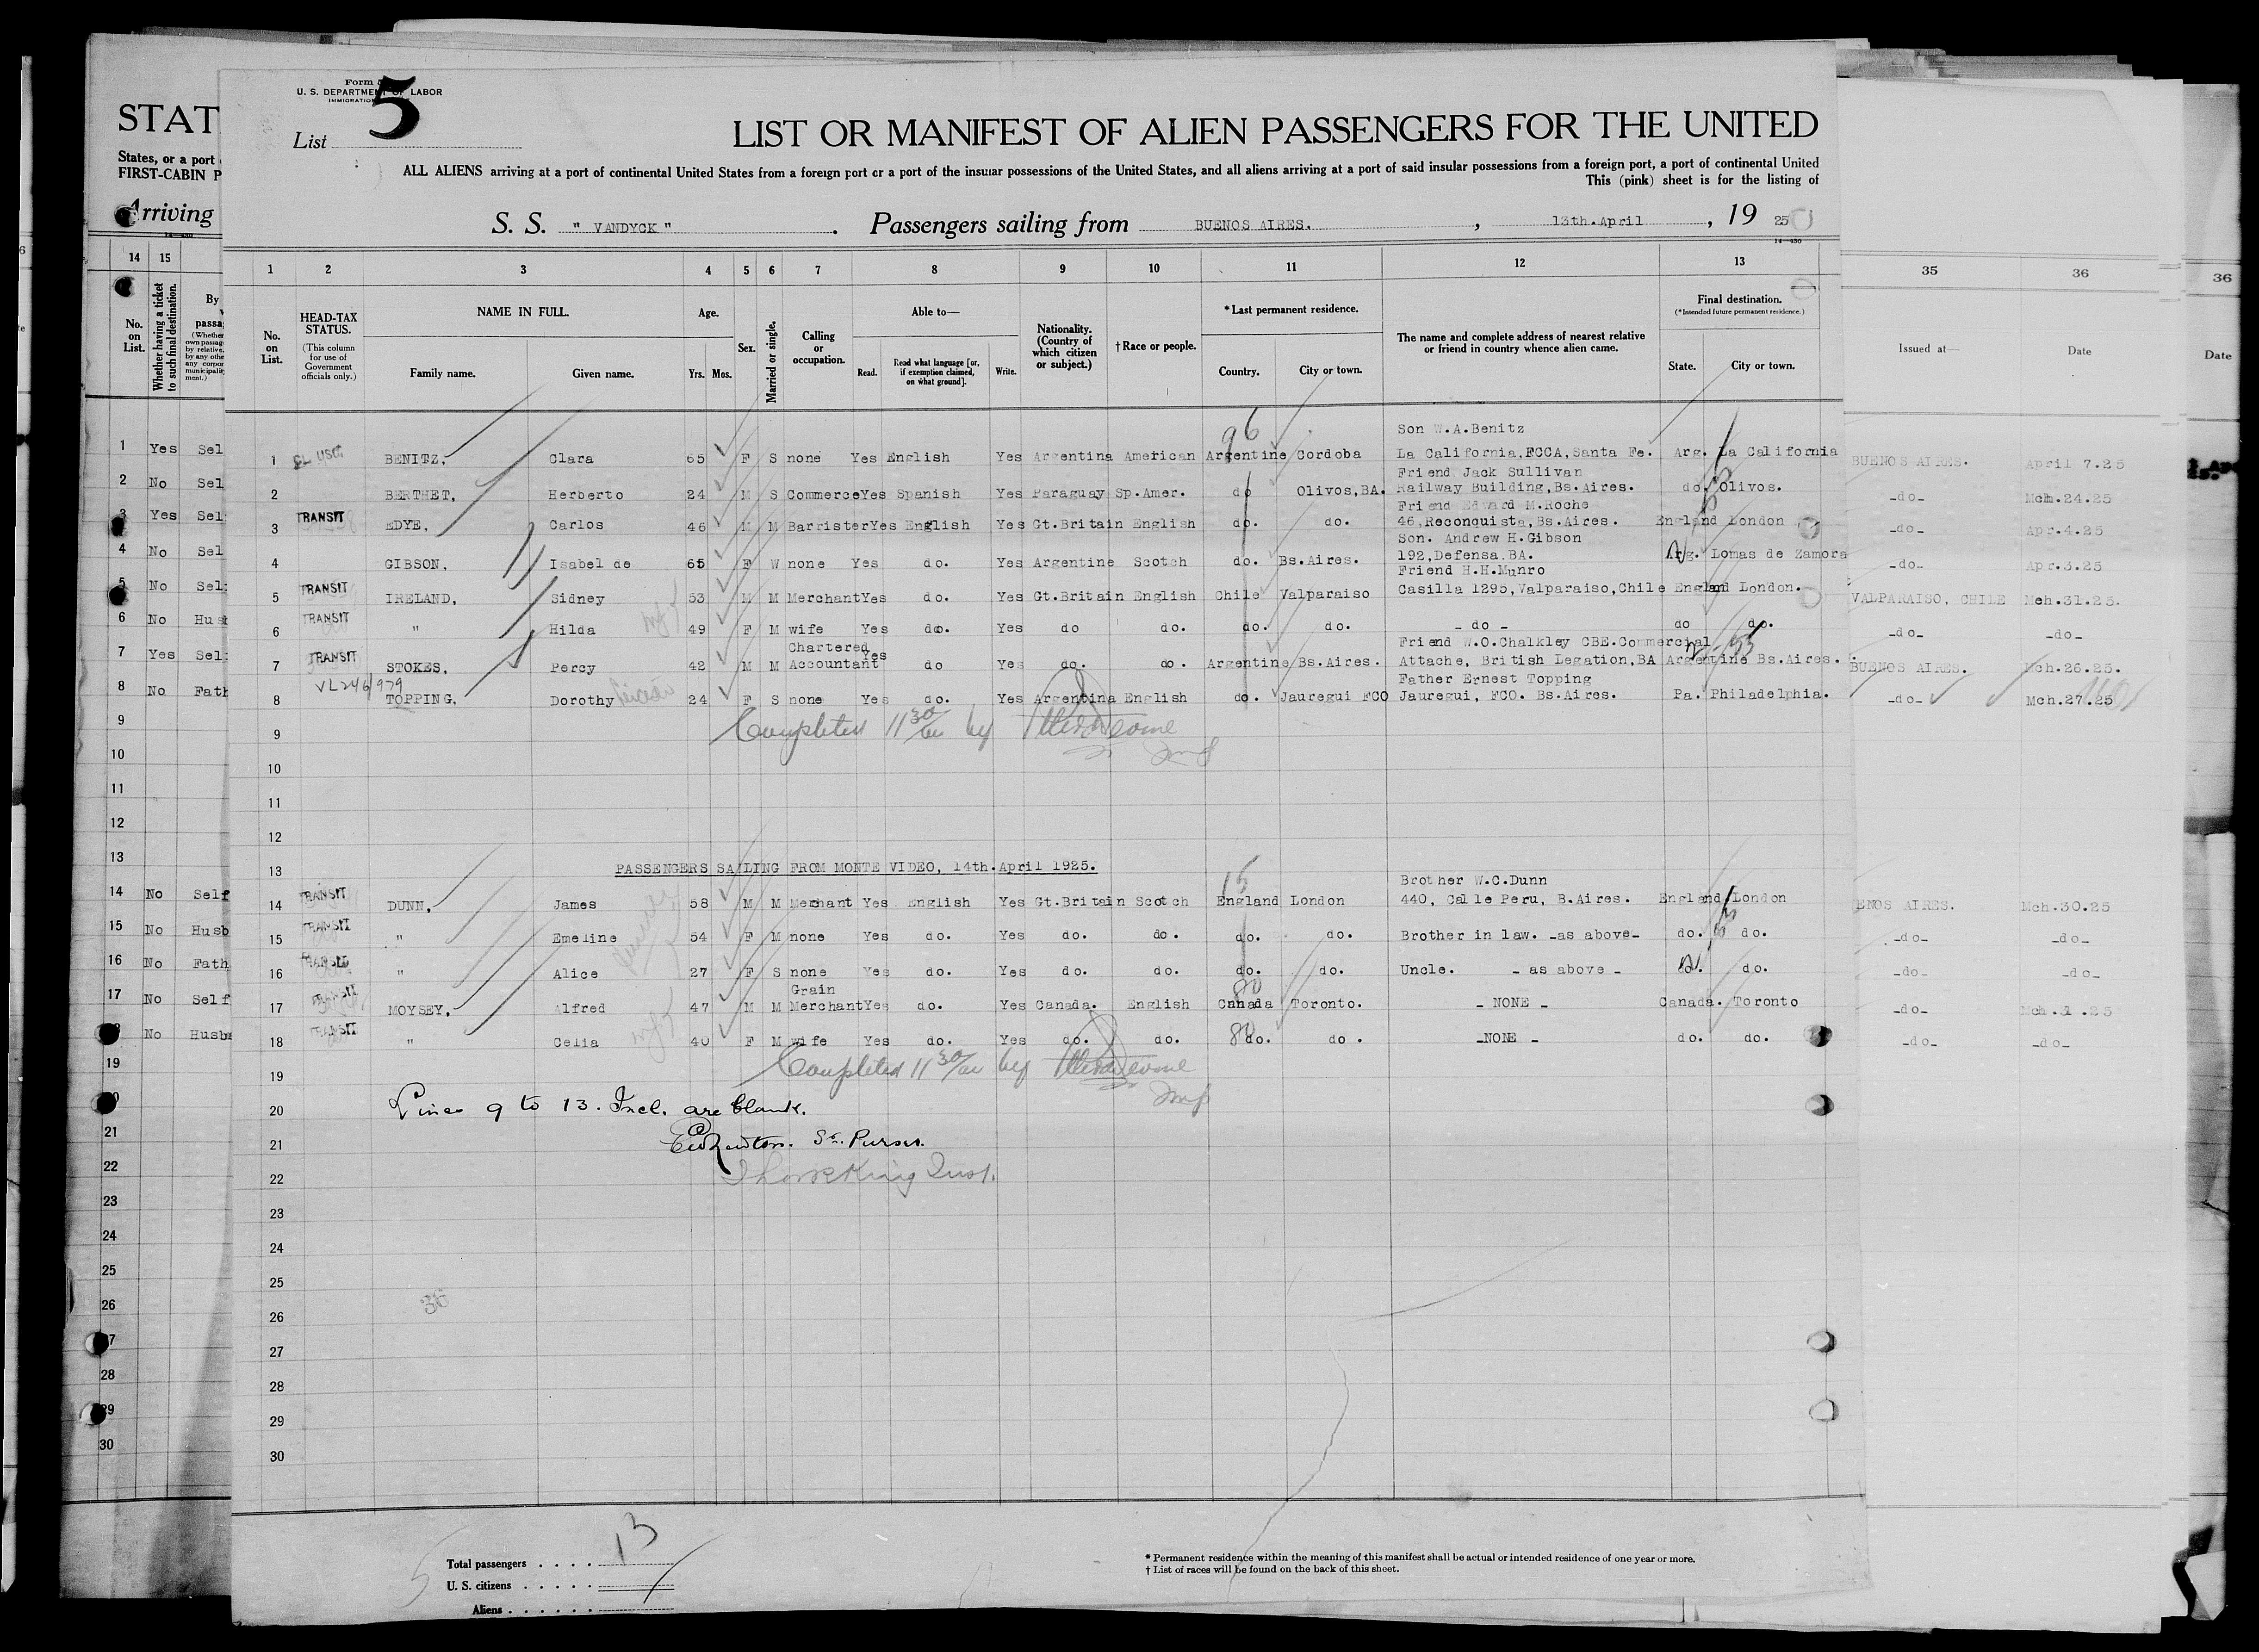 Form
U. S. DEPARTMENT OF LABOR
IMMIGRATION
List 5
LIST OR MANIFEST OF ALIEN PASSENGERS FOR THE UNITED
ALL ALIENS arriving at a port of continental United States from a foreign port or a port of the insular possessions of the United States, and all aliens arriving at a port of said insular possessions from a foreign port, a port of continental United
This (pink) sheet is for the listing of
S. S. " VANDYCK ". Passengers sailing from BUENOS AIRES. , 13th.April , 19 25
STAT
States, or a port
FIRST-CABIN P
Arriving
14 15
1 2 3 4 5 6 7 8 9 10 11 12 13
35 36
36
No. on List.
Whether having a ticket to such final destination.
By
passa
No. on List.
HEAD-TAX STATUS.
(This column for use of Government officials only.)
NAME IN FULL.
Family name. Given name.
Age.
Yrs. Mos.
Sex.
Married or single.
Calling or occupation.
Able to—
Read. Read what language [or, if exemption claimed, on what ground]. Write.
Nationality. (Country of which citizen or subject.)
† Race or people.
* Last permanent residence.
Country. City or town.
The name and complete address of nearest relative or friend in country whence alien came.
Final destination.
(* Intended future permanent residence.)
State. City or town.
Issued at— Date
Date
96
Son W.A.Benitz
1 Yes Sel 1 BENITZ, Clara 65 F S none Yes English Yes Argentina American Argentine Cordoba La California,FCCA,Santa Fe. Arg. La California BUENOS AIRES. April 7.25
Friend Jack Sullivan
2 No Sel 2 BERTHET, Herberto 24 M S Commerce Yes Spanish Yes Paraguay Sp.Amer. do Olivos,BA. Railway Building,Bs.Aires. do. Olivos. -do- Mch.24.25
Friend Edward M.Roche
3 Yes Sel 3 TRANSIT EDYE, Carlos 46 M M Barrister Yes English Yes Gt.Britain English do. do. 46,Reconquista,Bs.Aires. England London -do- Apr.4.25
Son. Andrew H.Gibson
4 No Sel 4 GIBSON, Isabel de 65 F W none Yes do. Yes Argentine Scotch do. Bs.Aires. 192,Defensa.BA. Arg. Lomas de Zamora -do- Apr.3.25
Friend H.H.Munro
5 No Sel 5 TRANSIT IRELAND, Sidney 53 M M Merchant Yes do. Yes Gt.Britain English Chile Valparaiso Casilla 1295,Valparaiso,Chile England London. VALPARAISO, CHILE Mch.31.25.
6 No Husb 6 TRANSIT " Hilda 49 F M wife Yes do. Yes do do. do. do. - do - do do. -do- -do-
Chartered Friend W.O.Chalkley CBE.Commercial
7 Yes Sel 7 TRANSIT STOKES, Percy 42 M M Accountant Yes do Yes do. do. Argentine Bs.Aires. Attache, British Legation,BA Argentine Bs.Aires. BUENOS AIRES. Mch.26.25.
VL246/979 Father Ernest Topping
8 No Fath 8 TOPPING, Dorothy 24 F S none Yes do. Yes Argentina English do. Jauregui FCO Jauregui, FCO. Bs.Aires. Pa. Philadelphia. -do- Mch.27.25
9 9 Completed 11 30/am by
10 10
11 11
12 12
13 13 PASSENGERS SAILING FROM MONTE VIDEO, 14th.April 1925.
15 Brother W.C.Dunn
14 No Self 14 TRANSIT DUNN, James 58 M M Merchant Yes English Yes Gt.Britain Scotch England London 440, Calle Peru, B.Aires. England London ENOS AIRES. Mch.30.25
15 No Husb 15 TRANSIT " Emeline 54 F M none Yes do. Yes do. do. do. do. Brother in law. -as above- do. do. -do- -do-
16 No Fath 16 TRANSIT " Alice 27 F S none Yes do. Yes do. do. do. do. Uncle. - as above - do. do. -do- -do-
Grain 80
17 No Self 17 TRANSIT MOYSEY, Alfred 47 M M Merchant Yes do. Yes Canada. English Canada Toronto. - NONE - Canada. Toronto -do- Mch.31.25
18 No Husb 18 TRANSIT " Celia 40 F M wife Yes do. Yes do. do. 80 do. do. -NONE - do. do. -do- -do-
19 19 Completed 11 30/am by
20 Lines 9 to 13. Incl. are blank.
21 21 Sr. Purser.
22 22
23 23
24 24
25 25
26 26
27 27
28 28
29 29
30 30
36
Total passengers . . . . 13
U. S. citizens . . . . .
Aliens . . . . . .
* Permanent residence within the meaning of this manifest shall be actual or intended residence of one year or more.
† List of races will be found on the back of this sheet.